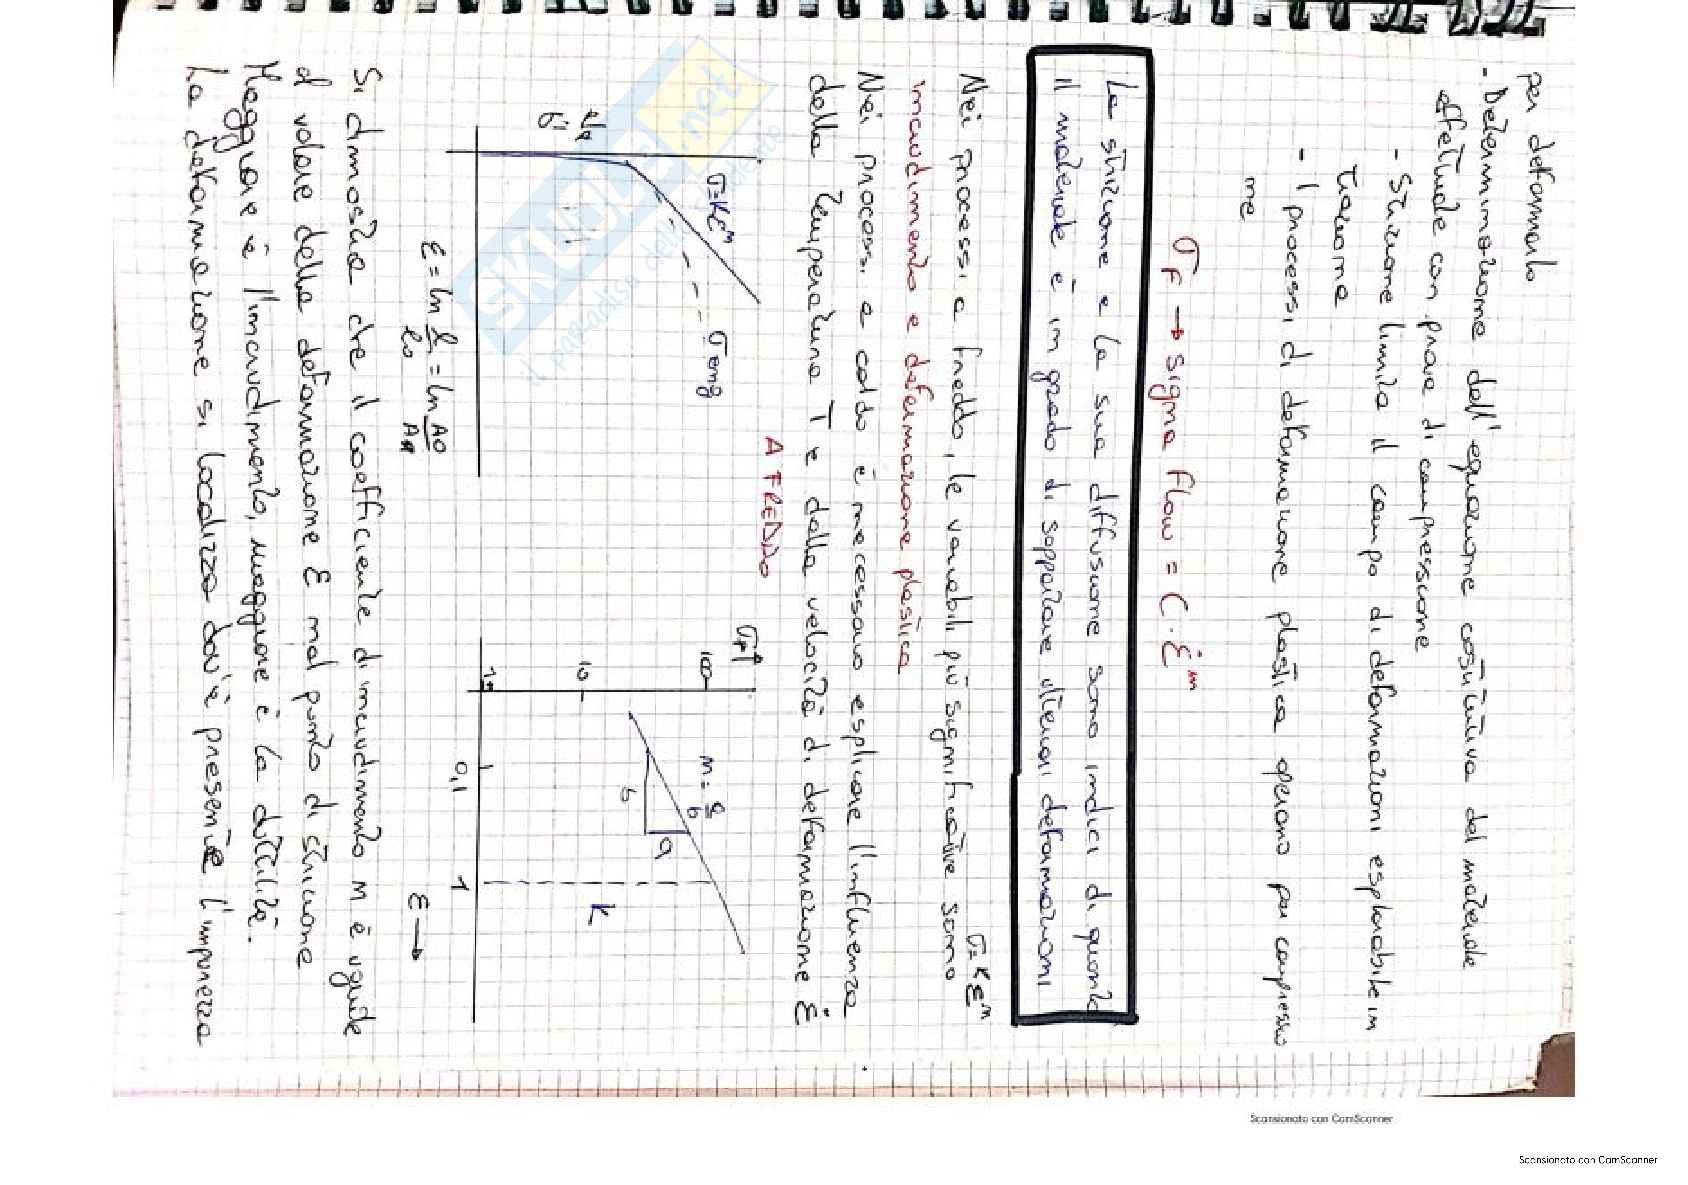 per deformarlo
- Determinazione dell'equazione costitutiva del materiale
effettuate con prove di compressione
- Strizione limita il campo di deformazioni esplorabile in
trazione
- I processi di deformazione plastica operano per compressio
ne
σF → sigma flow = C · ε̇^m
La strizione e la sua diffusione sono indici di quanto
il materiale è in grado di sopportare ulteriori deformazioni
σ = Kε^n
Nei processi a freddo, le variabili più significative sono
incrudimento e deformazione plastica
Nei processi a caldo è necessario esplicare l'influenza
della temperatura T e della velocità di deformazione ε̇
A FREDDO
σ = Kε^n
σ eng
ε = ln l/l0 = ln A0/A
σF
100
10
1
n = a/b
a
b
K
0,1
1
ε →
Si dimostra che il coefficiente di incrudimento n è uguale
al valore della deformazione ε nel punto di strizione
Maggiore è l'incrudimento, maggiore è la duttilità.
La deformazione si localizza dov'è presente l'impurezza
SKUOLA.net
il paradiso dello studente
Scansionato con CamScanner
Scansionato con CamScanner